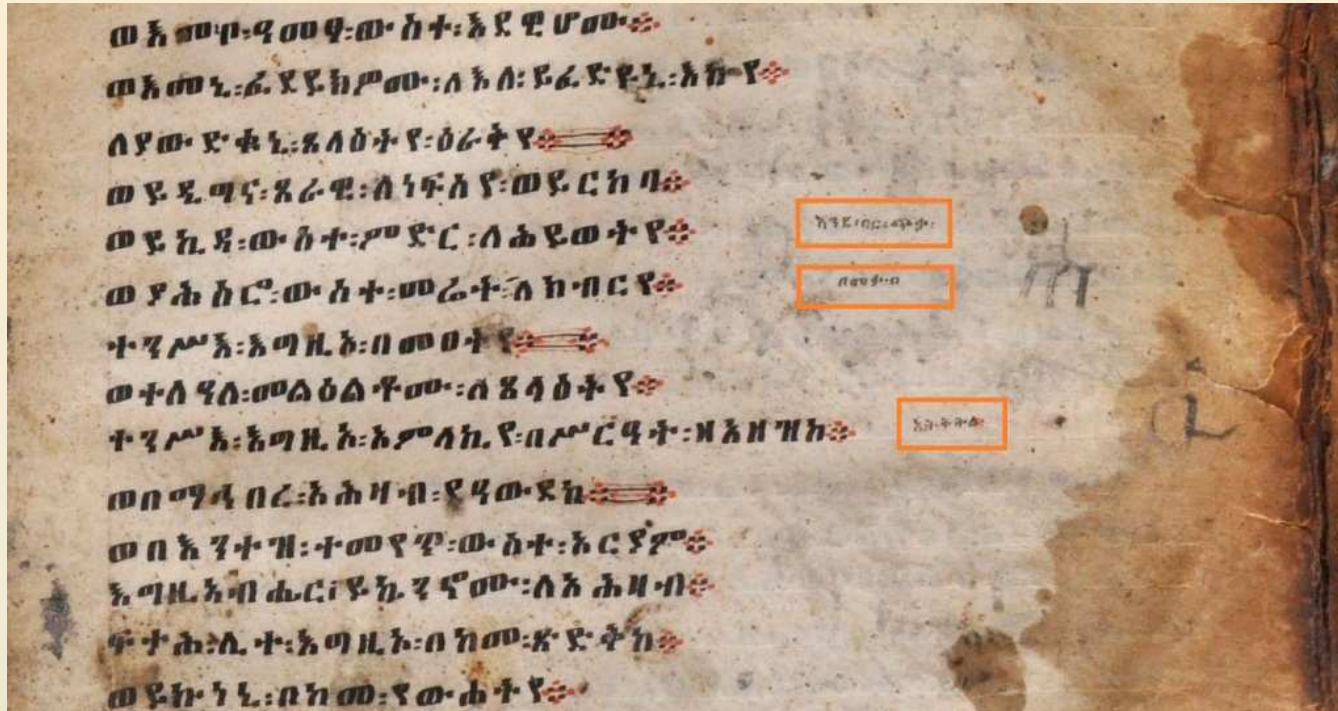 ወእመቦ፡ዓመፃ፡ውስተ፡እደዊሆሙ፨
ወእመኒ፡ፈደይክዎሙ፡ለእለ፡ይፈድዩኒ፡እኩየ፨
ለያውድቁኒ፡ጸላዕትየ፡ዕራቅየ፨
ወይዴግና፡ጸራዊ፡ለነፍስየ፡ወይርከባ፨
ወይኪዳ፡ውስተ፡ምድር፡ለሕይወትየ፨
ወያሕስሮ፡ውስተ፡መሬት፡ለክብርየ፨
ተንሥእ፡እግዚኦ፡በመዐትከ፨
ወተለዓለ፡መልዕልቶሙ፡ለጸላዕትየ፨
ተንሥእ፡እግዚኦ፡አምላኪየ፡በሥርዓት፡ዘአዘዝከ፨
ወበማኅበረ፡አሕዛብ፡የዓውደከ፨
ወበእንተዝ፡ተመየጥ፡ውስተ፡አርያም፨
እግዚአብሔር፡ይኴንኖሙ፡ለአሕዛብ፨
ፍታሕ፡ሊተ፡እግዚኦ፡በከመ፡ጽድቅከ፨
ወይኩነኒ፡በከመ፡የውሐትየ፨